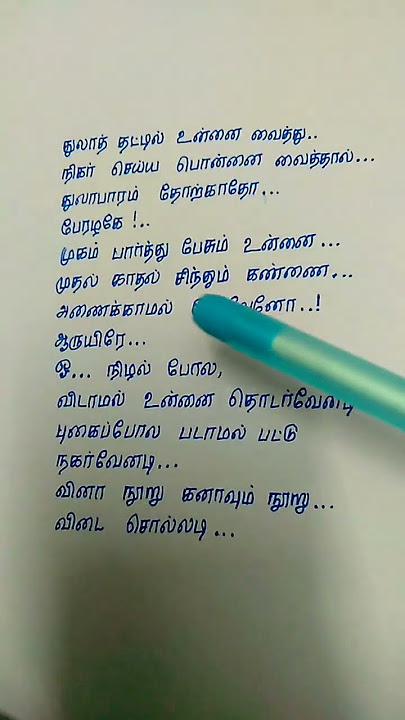 துலாத் தட்டில் உன்னை வைத்து..
நிகர் செய்ய பொன்னை வைத்தால்...
துலாபாரம் தோற்காதோ...
பேரழகே !..
முகம் பார்த்து பேசும் உன்னை...
முதல் காதல் சிந்தும் கண்ணை...
அணைக்காமல்
ஆருயிரே...
ஓ... நிழல் போல,
விடாமல் உன்னை தொடர்வேனடி
புகைப்போல படாமல் பட்டு
நகர்வேனடி...
வினா நூறு கனாவும் நூறு...
விடை சொல்லடி...